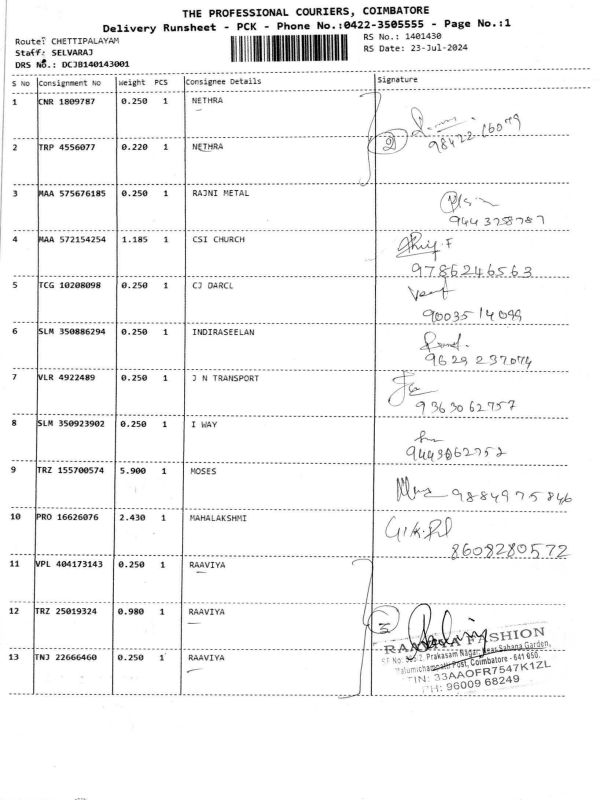 THE PROFESSIONAL COURIERS, COIMBATORE
Delivery Runsheet - PCK - Phone No.:0422-3505555 - Page No.:1
Route: CHETTIPALAYAM
RS No.: 1401430
Staff: SELVARAJ
RS Date: 23-Jul-2024
DRS No.: DCJB140143001
S No Consignment No Weight PCS Consignee Details Signature
1 CNR 1809787 0.250 1 NETHRA
2 98422 16079
2 TRP 4556077 0.220 1 NETHRA
3 MAA 575676185 0.250 1 RAJNI METAL
4 MAA 572154254 1.185 1 CSI CHURCH
9786246563
5 TCG 10208098 0.250 1 CJ DARCL
90035 14099
6 SLM 350886294 0.250 1 INDIRASEELAN
9629 237074
7 VLR 4922489 0.250 1 J N TRANSPORT
9363062757
8 SLM 350923902 0.250 1 I WAY
9 TRZ 155700574 5.900 1 MOSES
9884975846
10 PRO 16626076 2.430 1 MAHALAKSHMI
8608280572
11 VPL 404173143 0.250 1 RAAVIYA
12 TRZ 25019324 0.980 1 RAAVIYA
3
RAAVIYA FASHION
Prakasam Nagar, Near Sahana Garden,
13 TNJ 22666460 0.250 1 RAAVIYA
Post, Coimbatore - 641 050.
TIN: 33AAOFR7547K1ZL
PH: 96009 68249